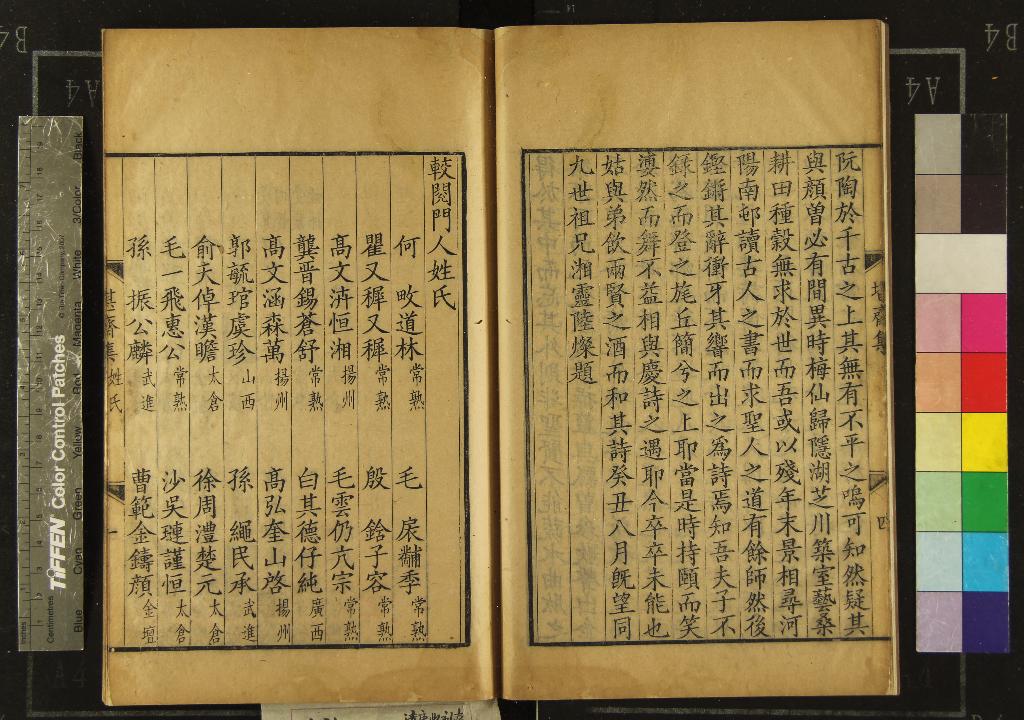 阮陶於千古之上其無有不平之鳴可知然疑其
與顏曽必有間異時梅仙歸隱湖芝川築室藝桑
耕田種穀無求於世而吾或以殘年末景相尋河
陽南邨讀古人之書而求聖人之道有餘師然後
鏗鏘其辭衝牙其響而出之為詩焉知吾夫子不
錄之而登之旄丘簡兮之上耶當是時持頤而笑
蹇然而舞不益相與慶詩之遇耶今卒卒未能也
姑與弟飲兩賢之酒而和其詩癸丑八月旣望同
九世祖兄湘靈陸燦題
四
較閱門人姓氏
何 畋道林 常熟 毛 扆黼季 常熟
瞿又穉又穉 常熟 殷 銓子容 常熟
高文洊恒湘 揚州 毛雲仍亢宗 常熟
龔晋錫蒼舒 常熟 白其德仔純 廣西
高文涵森萬 揚州 高弘奎山啓 揚州
郭毓琯虞珍 山西 孫 繩民承 武進
俞夫倬漢瞻 太倉 徐周澧楚元 太倉
毛一飛惠公 常熟 沙吳璉謹恒 太倉
孫 振公麟 武進 曹範金鑄顏 金壇
姓氏
一
TIFFEN Color Control Patches
Blue Cyan Green Yellow Red Magenta White 3/Color Black
Centimetres
A4
B4